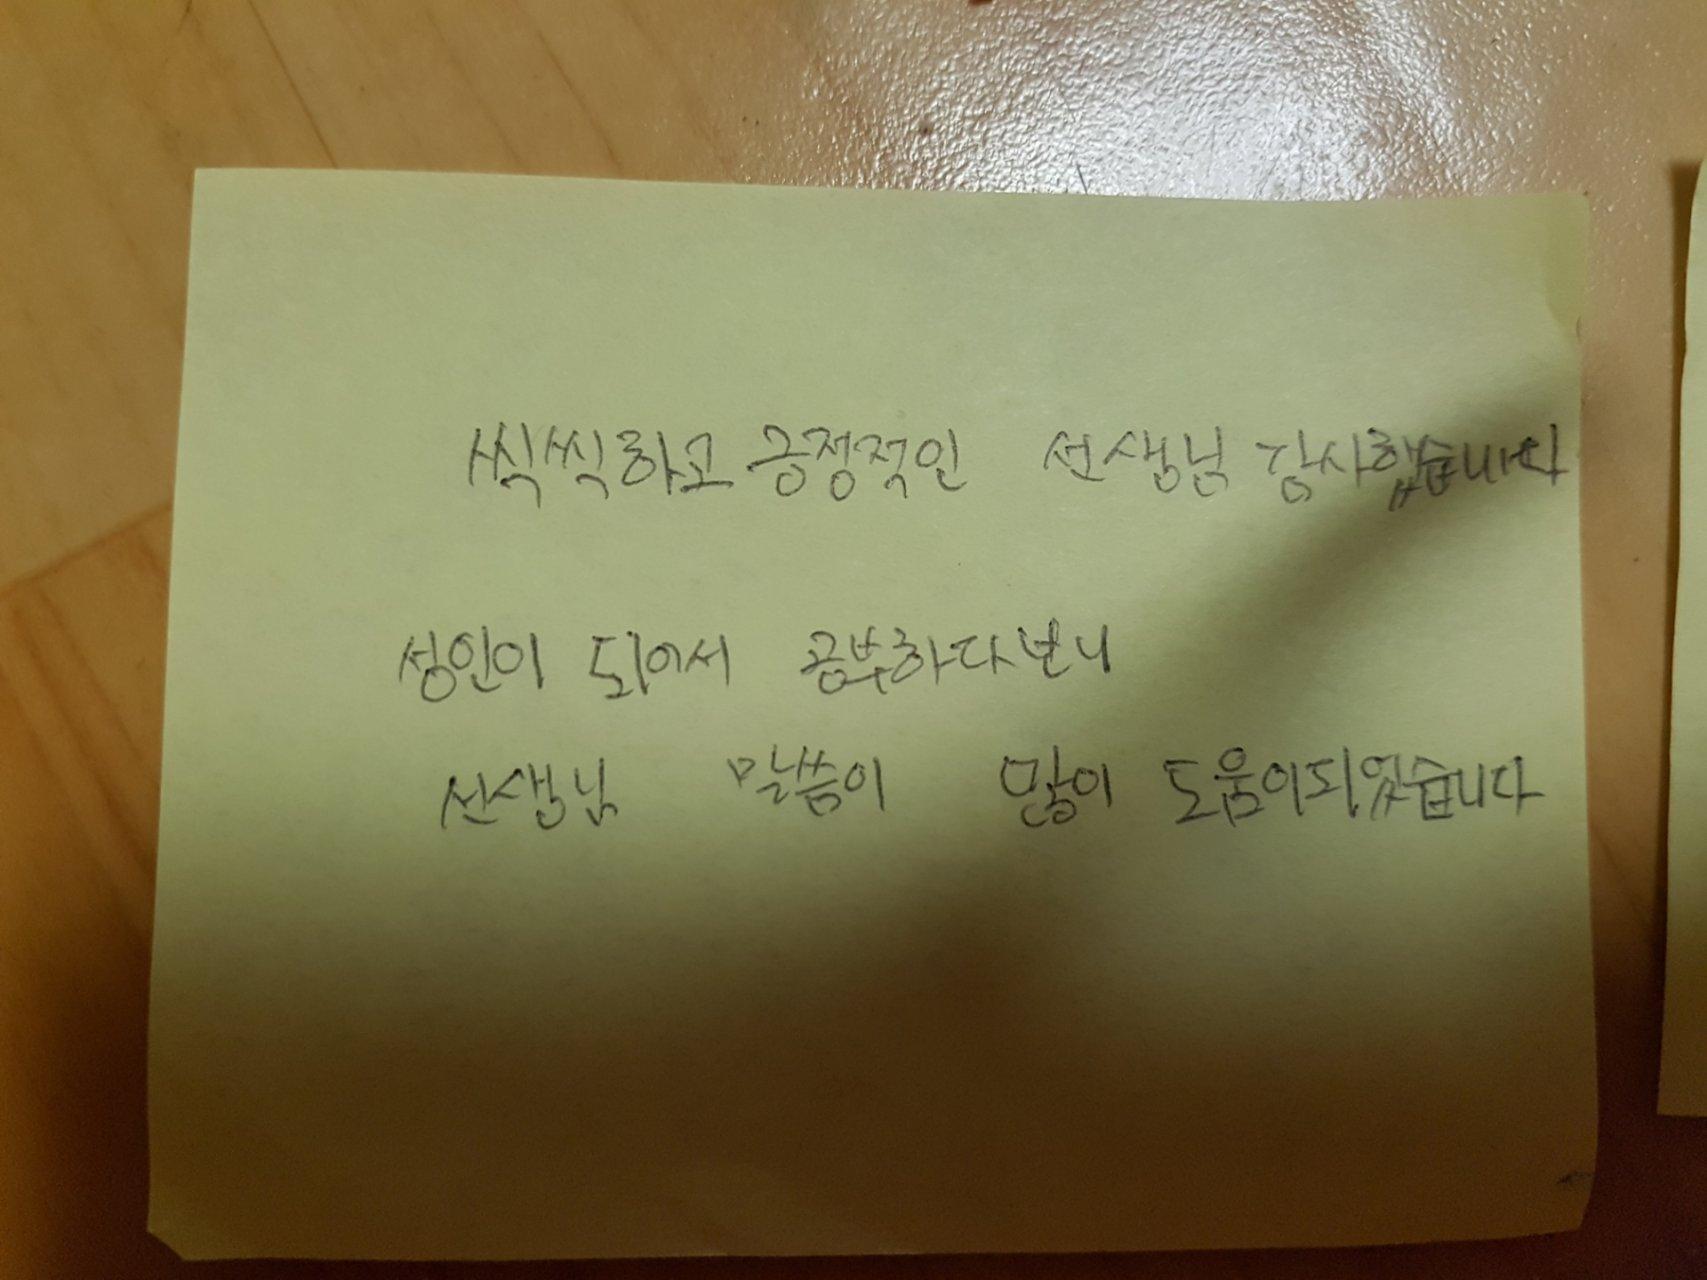 씩씩하고 긍정적인 선생님 감사했습니다
성인이 되어서 공부하다보니
선생님 말씀이 많이 도움이되었습니다